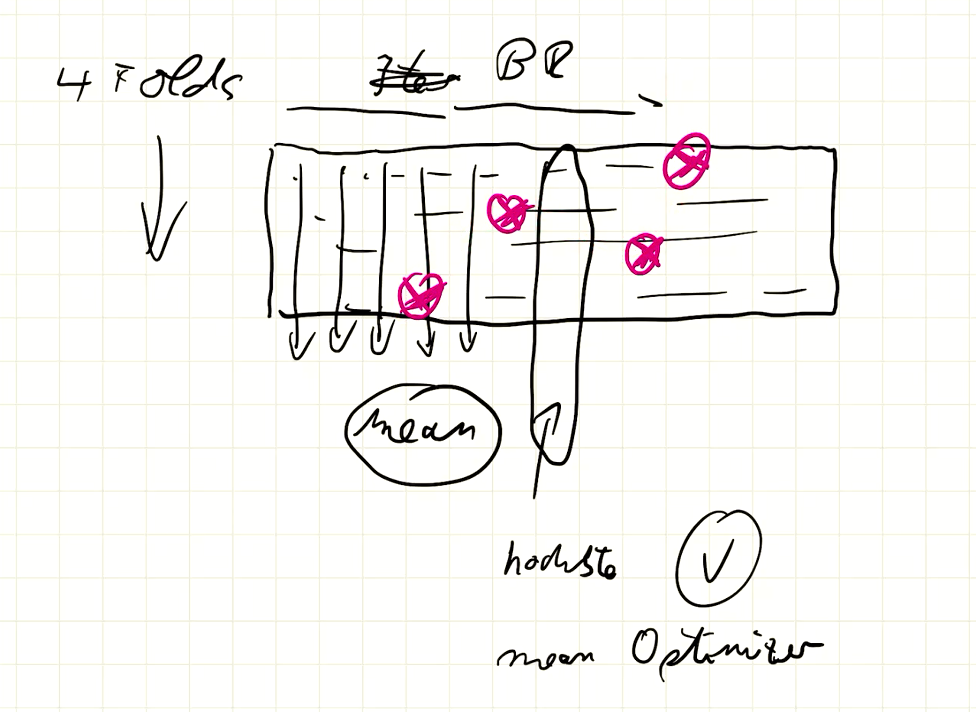 4 Folds BR
mean
hochste V
mean Optimizer